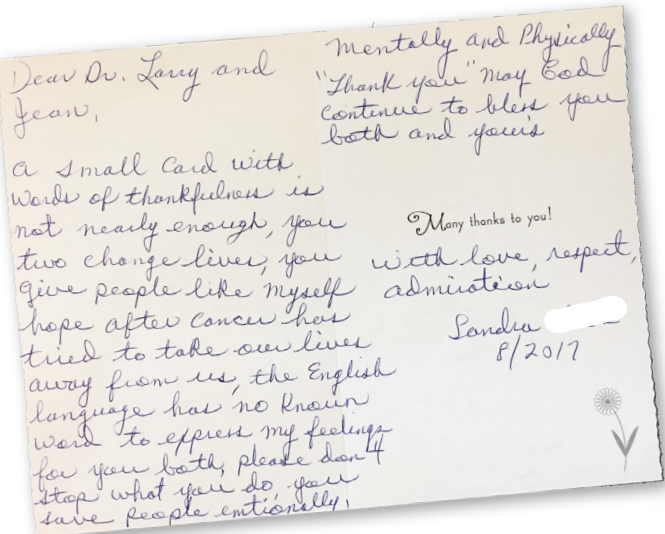 Dear Dr. Larry and
Jean,
A small card with
words of thankfulness is
not nearly enough, you
two change lives, you
give people like myself
hope after cancer has
tried to take our lives
away from us, the English
language has no known
word to express my feelings
for you both, please don't
stop what you do, you
save people emtionally,
Mentally and Physically
"Thank you" May God
continue to bless you
both and your's
Many thanks to you!
with love, respect,
admiration
Sandra
8/2017